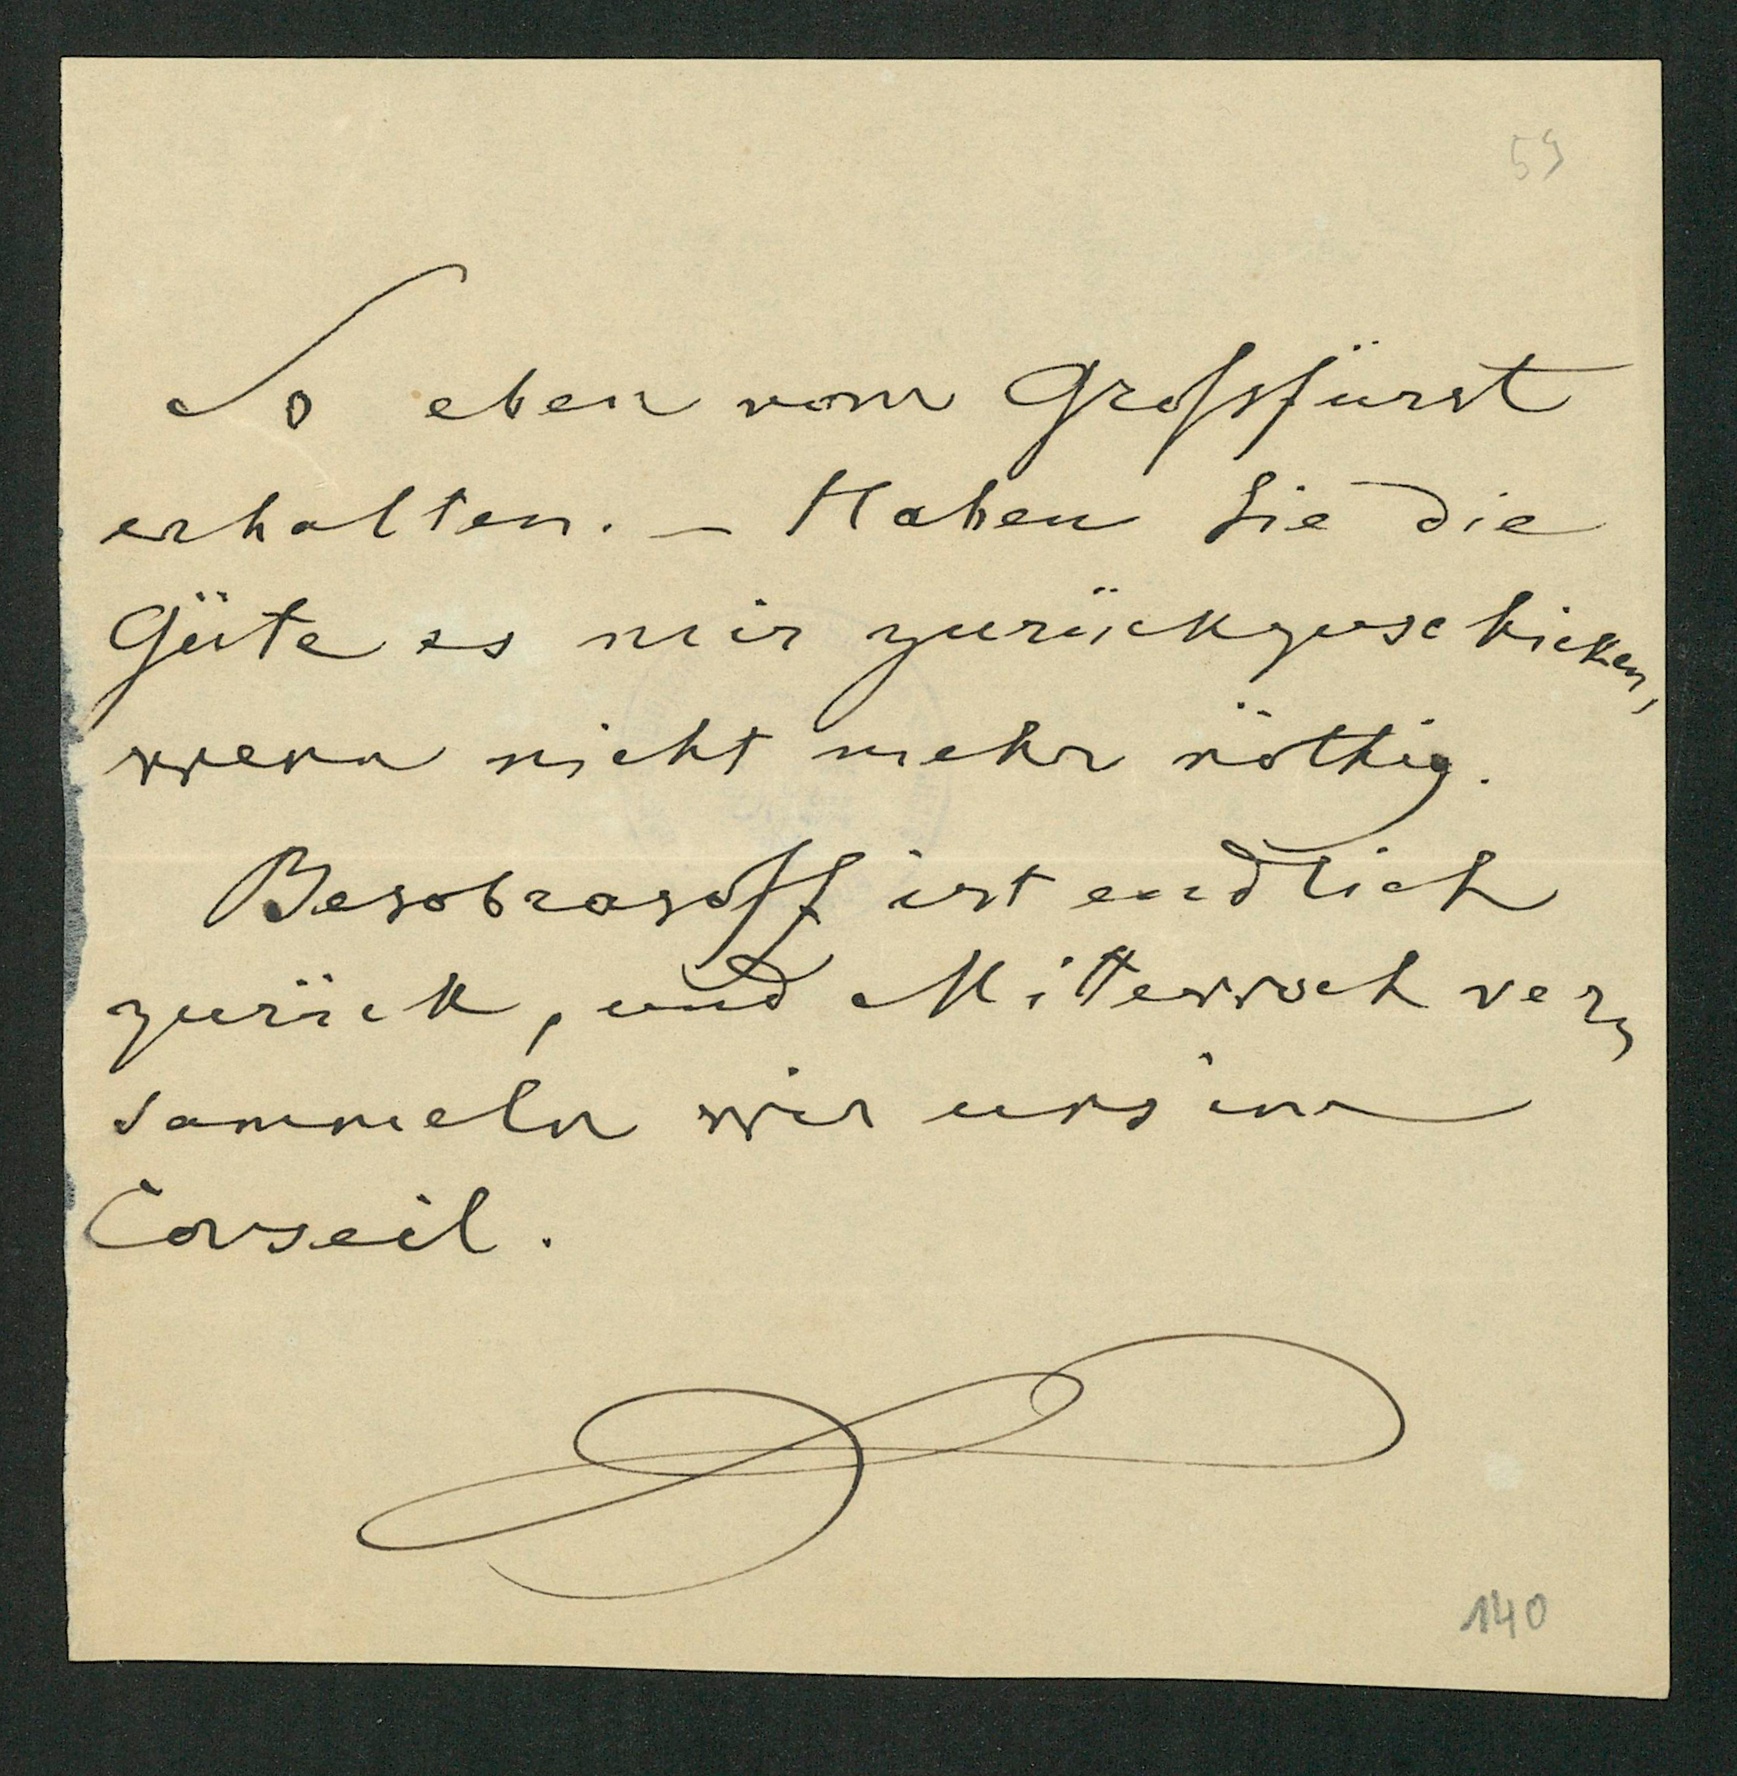 59
So eben vom Grossfürst
erhalten. — Haben Sie die
Güte es mir zurückzuschicken,
wenn nicht mehr nöthig.
Besobrasoff ist endlich
zurück, und Mittewoch ver
sammeln wir uns im
Conseil.
140